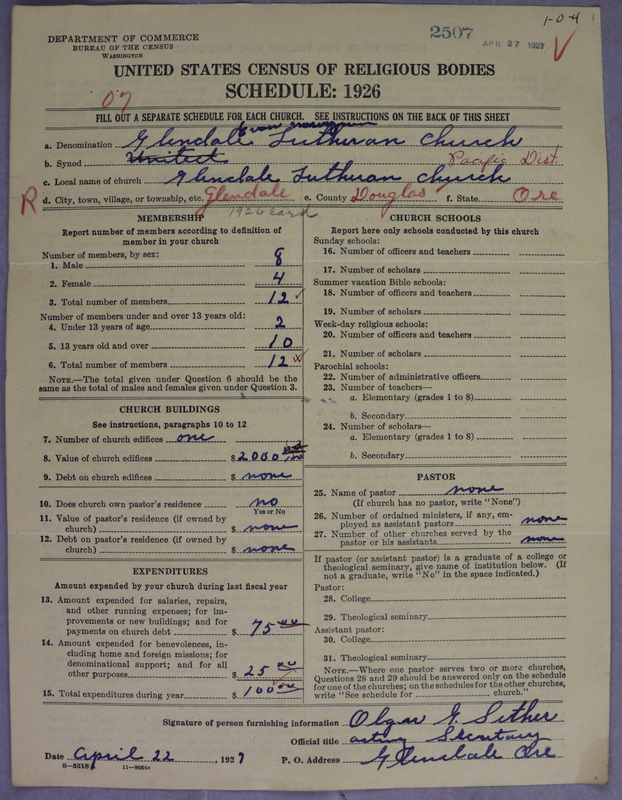 1-0-4
DEPARTMENT OF COMMERCE
BUREAU OF THE CENSUS
WASHINGTON
2507
APR 27 1927
UNITED STATES CENSUS OF RELIGIOUS BODIES
SCHEDULE: 1926
07
FILL OUT A SEPARATE SCHEDULE FOR EACH CHURCH. SEE INSTRUCTIONS ON THE BACK OF THIS SHEET
a. Denomination Glendale Lutheran Church
b. Synod United Pacific Dist.
c. Local name of church Glendale Lutheran Church
R d. City, town, village, or township, etc. Glendale e. County Douglas f. State Ore
1926 card
MEMBERSHIP
Report number of members according to definition of
member in your church
Number of members, by sex:
1. Male 8
2. Female 4
3. Total number of members 12
Number of members under and over 13 years old:
4. Under 13 years of age 2
5. 13 years old and over 10
6. Total number of members 12
NOTE.—The total given under Question 6 should be the
same as the total of males and females given under Question 3.
CHURCH BUILDINGS
See instructions, paragraphs 10 to 12
7. Number of church edifices one
8. Value of church edifices $ 2000
9. Debt on church edifices $ none
10. Does church own pastor's residence no
Yes or No
11. Value of pastor's residence (if owned by
church) $ none
12. Debt on pastor's residence (if owned by
church) $ none
EXPENDITURES
Amount expended by your church during last fiscal year
13. Amount expended for salaries, repairs,
and other running expenses; for im-
provements or new buildings; and for
payments on church debt $ 75 00
14. Amount expended for benevolences, in-
cluding home and foreign missions; for
denominational support; and for all
other purposes $ 25 00
15. Total expenditures during year $ 100 00
CHURCH SCHOOLS
Report here only schools conducted by this church
Sunday schools:
16. Number of officers and teachers
17. Number of scholars
Summer vacation Bible schools:
18. Number of officers and teachers
19. Number of scholars
Week-day religious schools:
20. Number of officers and teachers
21. Number of scholars
Parochial schools:
22. Number of administrative officers
23. Number of teachers—
a. Elementary (grades 1 to 8)
b. Secondary
24. Number of scholars—
a. Elementary (grades 1 to 8)
b. Secondary
PASTOR
25. Name of pastor none
(If church has no pastor, write "None")
26. Number of ordained ministers, if any, em-
ployed as assistant pastors none
27. Number of other churches served by the
pastor or his assistants none
If pastor (or assistant pastor) is a graduate of a college or
theological seminary, give name of institution below. (If
not a graduate, write "No" in the space indicated.)
Pastor:
28. College
29. Theological seminary
Assistant pastor:
30. College
31. Theological seminary
NOTE.—Where one pastor serves two or more churches,
Questions 28 and 29 should be answered only on the schedule
for one of the churches; on the schedules for the other churches,
write "See schedule for church."
Signature of person furnishing information Olgar G. Sether
Official title acting Secretary
Date April 22, 1927 P. O. Address Glendale Ore
8—5518 11—9034